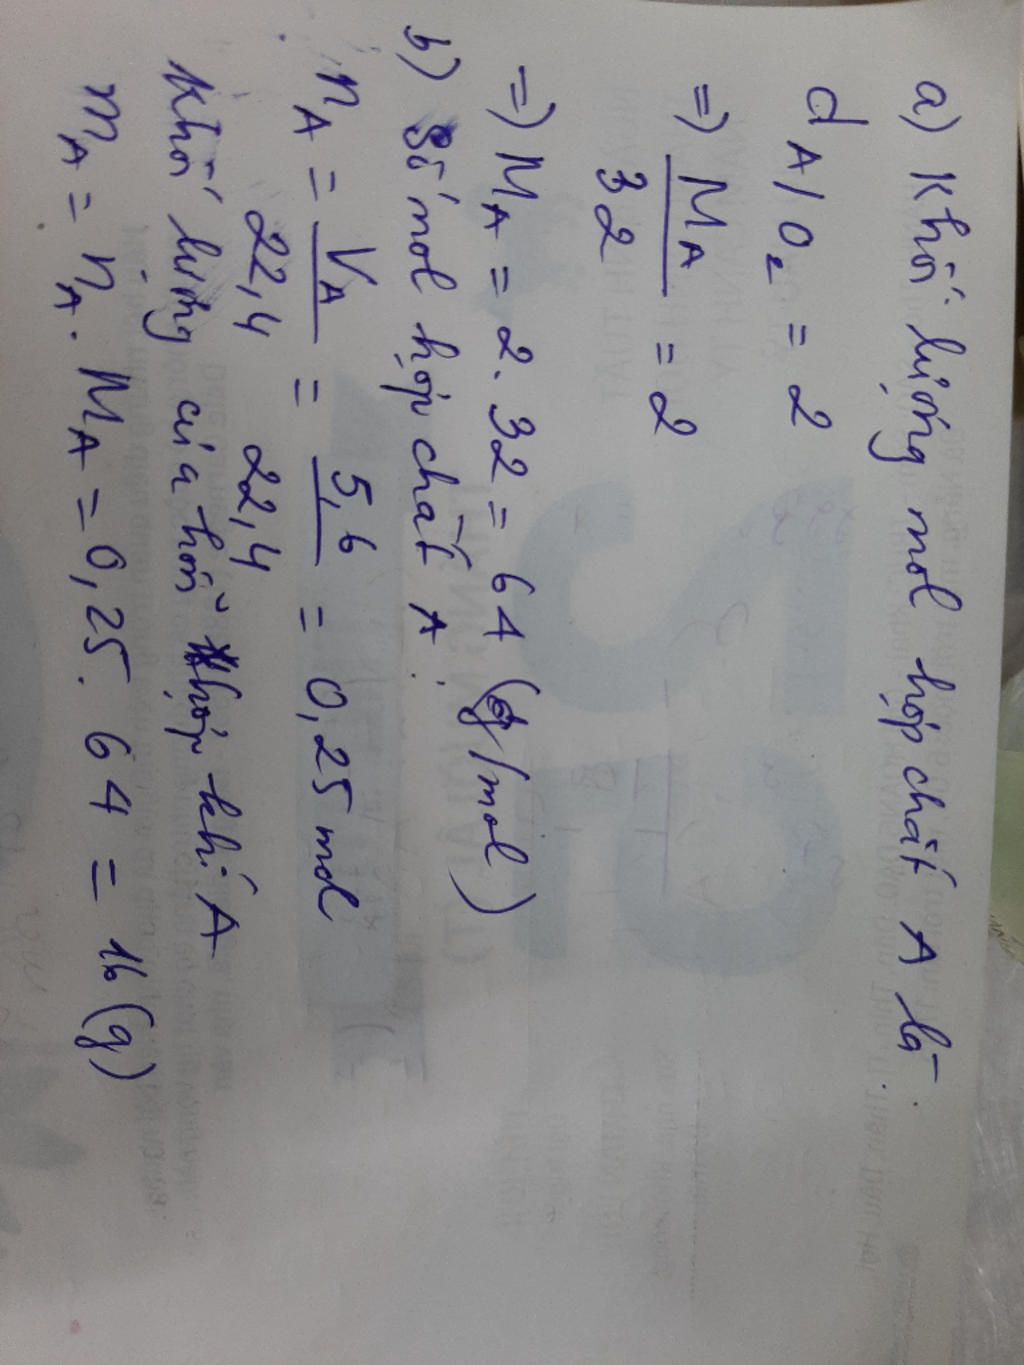 a) Khối lượng mol hợp chất A là:
d A/O₂ = 2
=> M_A / 32 = 2
=> M_A = 2. 32 = 64 (g/mol)
b) Số mol hợp chất A:
n_A = V_A / 22,4 = 5,6 / 22,4 = 0,25 mol
Khối lượng của hỗn hợp khí A
m_A = n_A. M_A = 0,25. 64 = 16 (g)